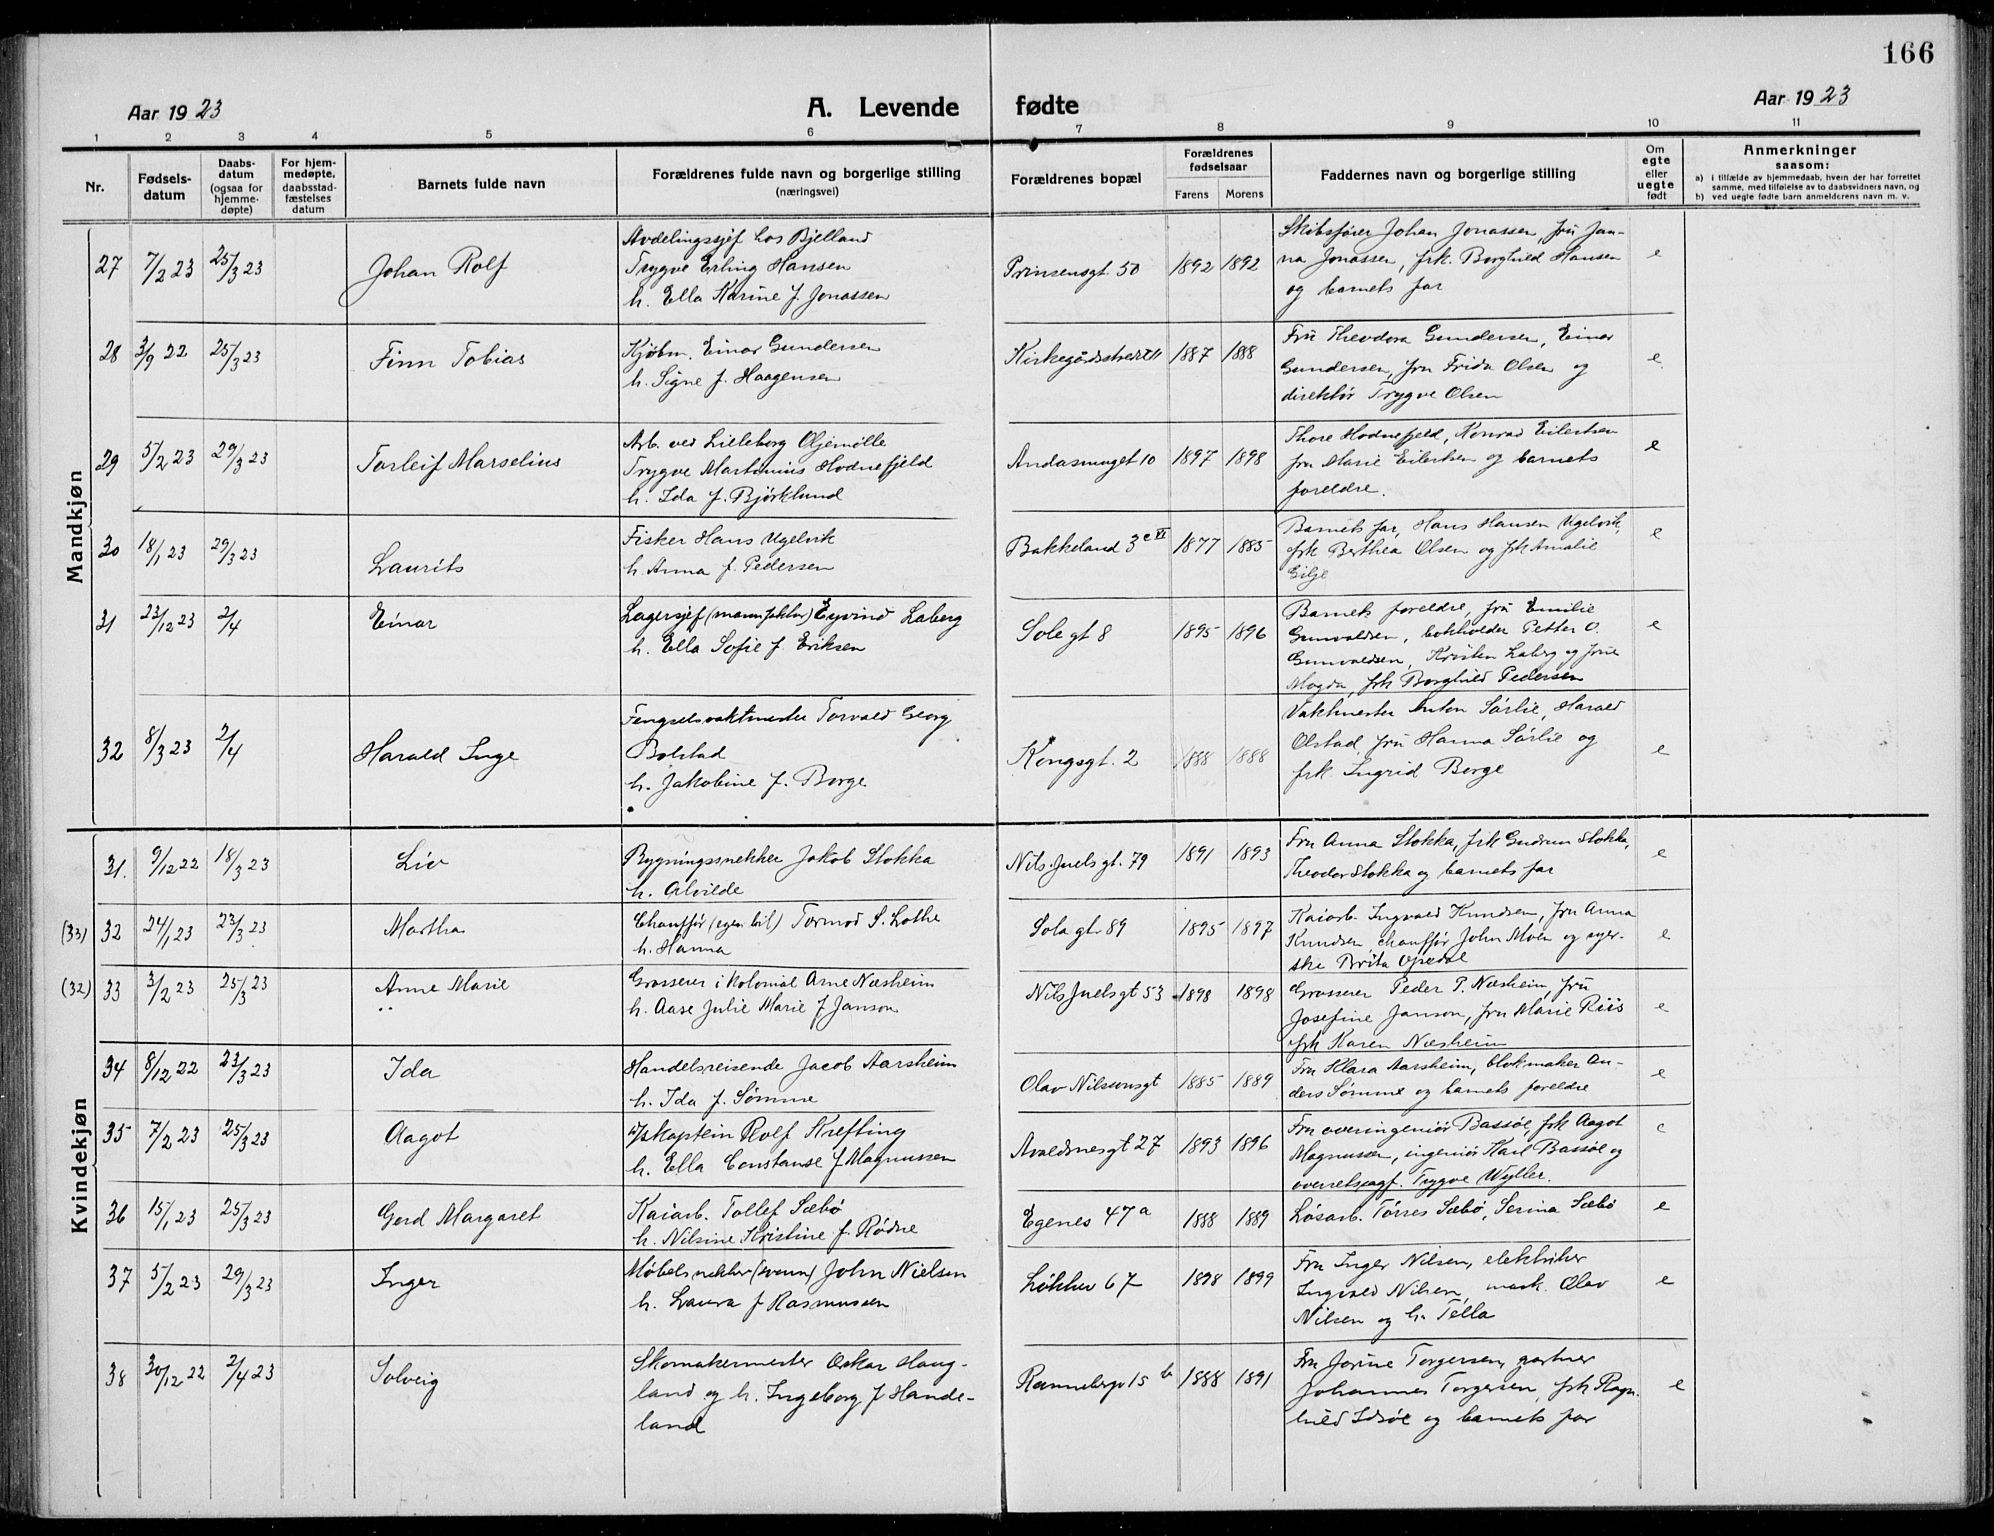 166
Aar 1923 A. Levende fødte Aar 1923
1 2 3 4 5 6 7 8 9 10 11
Nr. Fødselsdatum Daabsdatum (ogsaa for hjemmedøpte) For hjemmedøpte, daabsstadfæstelses datum Barnets fulde navn Forældrenes fulde navn og borgerlige stilling (næringsvei) Forældrenes bopæl Forældrenes fødselsaar Farens Morens Faddernes navn og borgerlige stilling Om egte eller uegte født Anmerkninger saasom:
a) i tilfælde av hjemmedaab, hvem der har forrettet samme, med tilføielse av to daabsvidners navn, og
b) ved uegte fødte barn anmelderens navn m. v.
Mandkjøn
27 7/2 23 25/3 23 Johan Rolf
Avdelingssjef hos Bjelland
Trygve Erling Hansen
h. Ella Karine f. Jonassen
Prinsensgt 50 1892 1892
Skibsfører Johan Jonassen, fru Jan-
na Jonassen, frk. Borghild Hansen
og barnets far
e
28 3/9 22 25/3 23 Finn Tobias
Kjøbm. Einar Gundersen
h. Signe f. Haagensen
Kirkegårdsstredet 1887 1888
Fru Theodora Gundersen, Einar
Gundersen, fru Frida Olsen og
direktør Trygve Olsen
e
29 5/2 23 29/3 23 Torleif Marselius
Arb. ved Lilleborg Oljemølle
Trygve Martinius Hodnefjeld
h. Ida f. Bjørklund
Andasmuget 10 1897 1898
Thore Hodnefjeld, Konrad Eilertsen
fru Marie Eilertsen og barnets
foreldre.
e
30 18/1 23 29/3 23 Laurits
Fisker Hans Ugelvik
h. Anna f. Pedersen
Bakkeland 3 1877 1885
Barnets far, Hans Hansen Ugelvik,
frk Berthea Olsen og frk Amalie
Gilje
e
31 23/12 23 2/4 Einar
Lagersjef (manufaktur) Eyvind Laberg
h. Ella Sofie f. Eriksen
Solegt 8 1895 1896
Barnets foreldre, fru Emilie
Gunvaldsen, bokholder Petter O.
Gunvaldsen, Kristen Laberg og frue
Magda, frk Borghild Pedersen
e
32 8/3 23 2/4 Harald Inge
Fengselsvaktmester Torvald Georg
Bolstad
h. Jakobine f. Borge
Kongsgt. 2 1888 1888
Vaktmester Anton Sørlie, Harald
Olstad, fru Hanna Sørlie og
frk. Ingrid Borge
e
Kvindekjøn
31. 9/12 22 18/3 23 Liv
Bygningssnekker Jakob Stokka
h. Alvilde
Nils Juels gt. 79 1891 1893
Fru Anna Stokka, frk Gudrun Stokka,
Theodor Stokka og barnets far
e
(33) 32 24/1 23 23/3 23 Martha
Chauffør (egen bil) Tormod S. Lothe
h. Hanna
Sola gt 89 1895 1897
Kaiarb. Ingvald Knudsen, fru Anna
Knudsen, chauffør John Moen og syer-
ske Brita Opedal
e
(32) 33 3/2 23 25/3 23 Anne Marie
Grosserer i kolonial Arne Næsheim
h. Aase Julie Marie f Janson
Nils Juels gt 53 1898 1898
Grosserer Peder P. Næsheim, fru
Josefine Janson, fru Marie Riis
frk Karen Næsheim
e
34 8/12 22 23/3 23 Ida
Handelsreisende Jacob Aarsheim
h. Ida f. Sømme
Olav Nilssonsgt 1885 1889
Fru Klara Aarsheim, blokmaker An-
ders Sømme og barnets foreldre
e
35 7/2 23 25/3 23 Aagot
D/skaptein Rolf Krefting
h. Ella Constanse f Magnussen
Avaldsnesgt 27 1893 1896
Fru overingeniør Bassøe, frk Aagot
Magnussen, ingeniør Karl Bassøe og
overretssagf. Trygve Wyller.
e
36 15/1 23 25/3 23 Gerd Margaret
Kaiarb. Tollef Sæbø
h. Nilsine Kristine f. Rødne
Egenes 47a 1888 1889
Løsarb. Tørres Sæbø, Serina Sæbø
e
37 5/2 23 29/3 23 Inger
Møbelsnekker (svenn) John Nielsen
h. Laura f Rasmussen
Løkkev 67 1898 1899
Fru Inger Nilsen, elektriker
Ingvald Nilsen, mask. Olav
Nilsen og h. Tella
e
38 30/12 22 2/4 23 Solveig
Skomakermester Oskar Haug-
land og h. Ingeborg f Hande-
land
Rannebergv 15 b 1888 1891
Fru Jorine Torgersen, gartner
Johannes Torgersen, frk Ragn-
hild Idsøe og barnets far
e